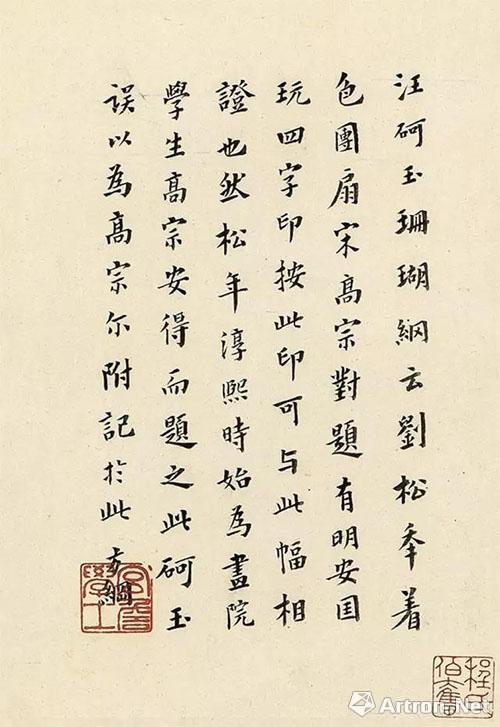 汪砢玉珊瑚綱云劉松年着
色團扇宋高宗對題有明安国
玩四字印按此印可与此幅相
證也然松年淳熙時始為畫院
學生高宗安得而題之此砢玉
誤以為高宗尔附記於此方綱
程氏
伯奮
Artron.Net